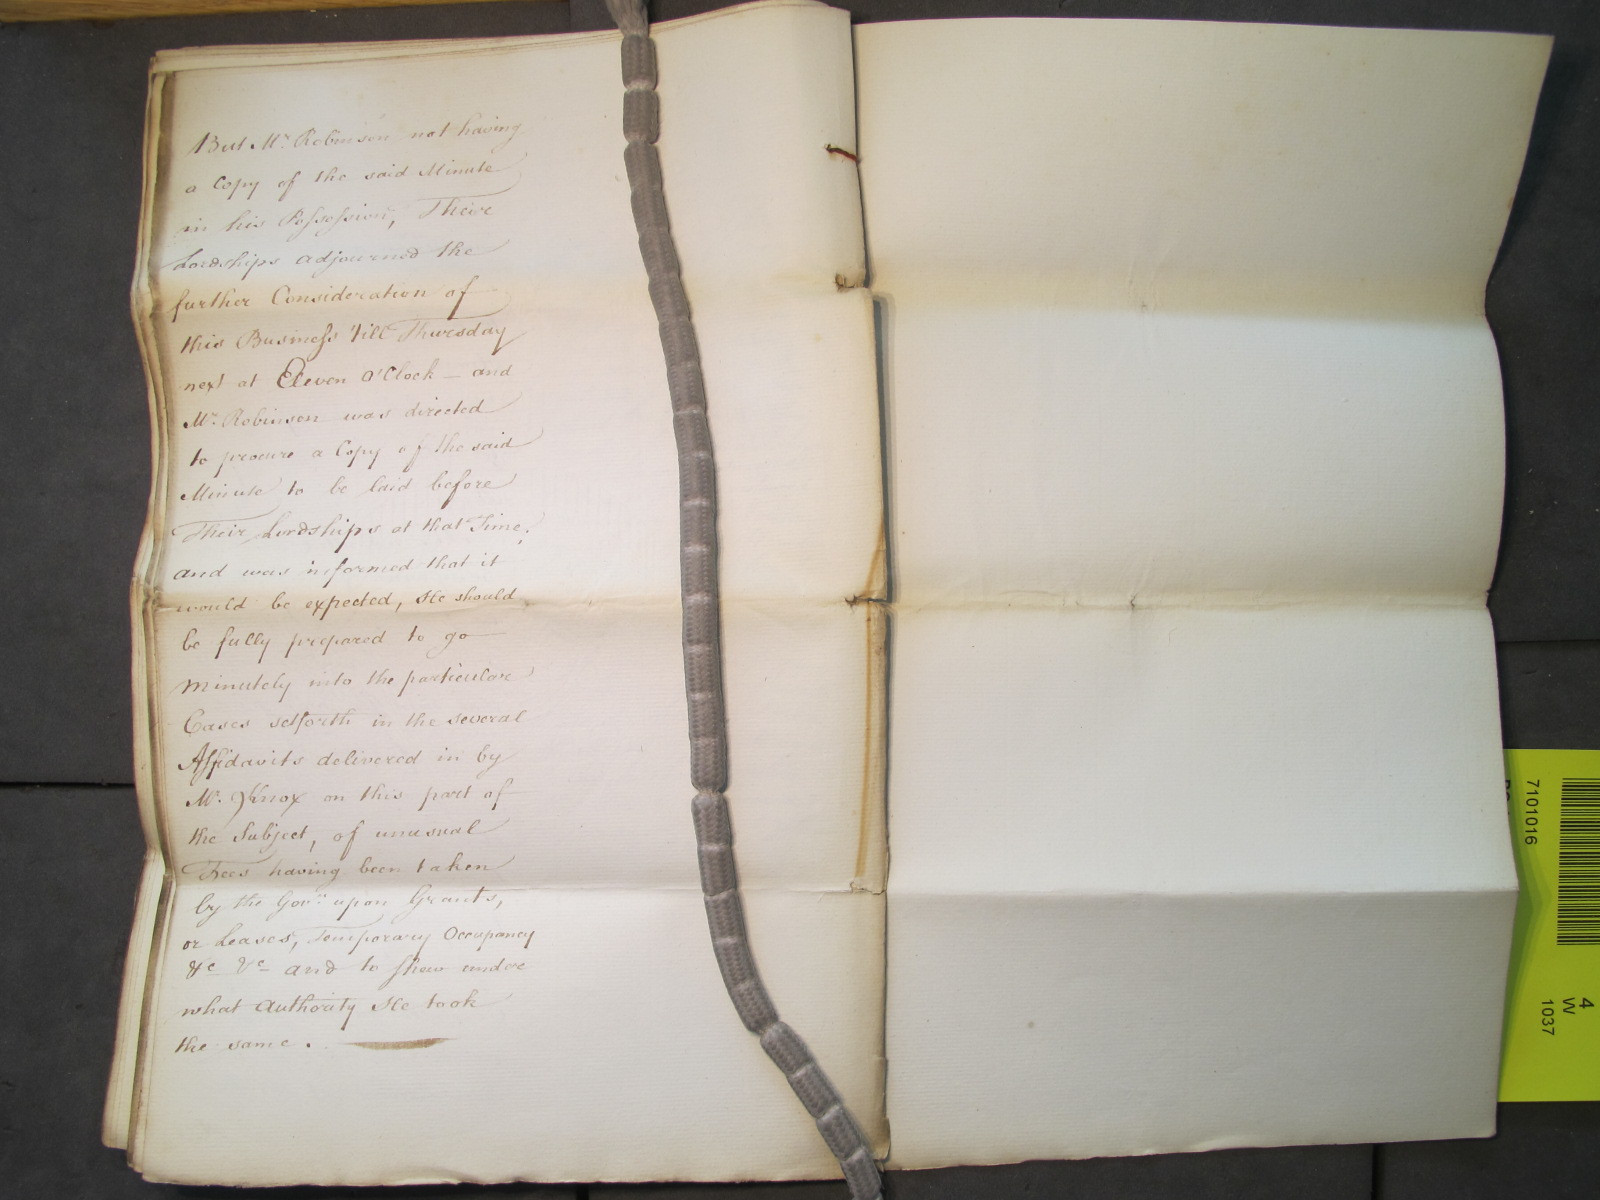 But Mr. Robinson not having
a Copy of the said Minute
in his Possession, Their
Lordships adjourned the
further Consideration of
this Business 'till Thursday
next at Eleven O'Clock — and
Mr. Robinson was directed
to procure a Copy of the said
Minute to be laid before
Their Lordships at that Time;
and was informed that it
would be expected, He should
be fully prepared to go
minutely into the particular
Cases setforth in the several
Affidavits delivered in by
Mr. Knox on this part of
the Subject, of unusual
Fees having been taken
by the Govr. upon Grants,
or Leases, temporary Occupancy
&c &c and to shew under
what Authority He took
the same.
7101016
4
W
1037